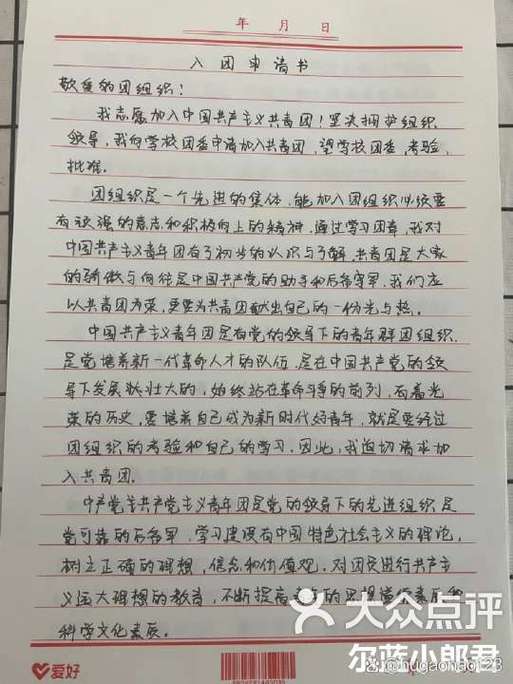 年 月 日
入团申请书
敬爱的团组织：
我志愿加入中国共产主义共青团！坚决拥护组织
领导，我向学校团委申请加入共青团，望学校团委，考验，
批准。
团组织是一个先进的集体，能加入团组织必须要
有顽强的意志和积极向上的精神，通过学习团章，我对
中国共产主义青年团有了初步的认识与了解，共青团是大家
的骄傲与向往是中国共产党的助手和后备军，我们应
以共青团为荣，更要为共青团献出自己的一份光与热。
中国共产主义青年团是有党的领导下的青年群团组织，
是党培养新一代革命人才的队伍，是在中国共产党的领
导下发展壮大的，始终站在革命斗争的前列，有着光
荣的历史，要培养自己成为新时代好青年，就是要经过
团组织的考验和自己的学习，因此，我迫切请求加
入共青团。
中产党共产党主义青年团是党的领导下的先进组织是
党可靠的后备军，学习建设有中国特色社会主义的理论，
树立正确的理想，信念和价值观，对团员进行共产主
义远大理想的教育，不断提高的思想道德素质和
科学文化素质。
大众点评
尔蓝小郎君
爱好